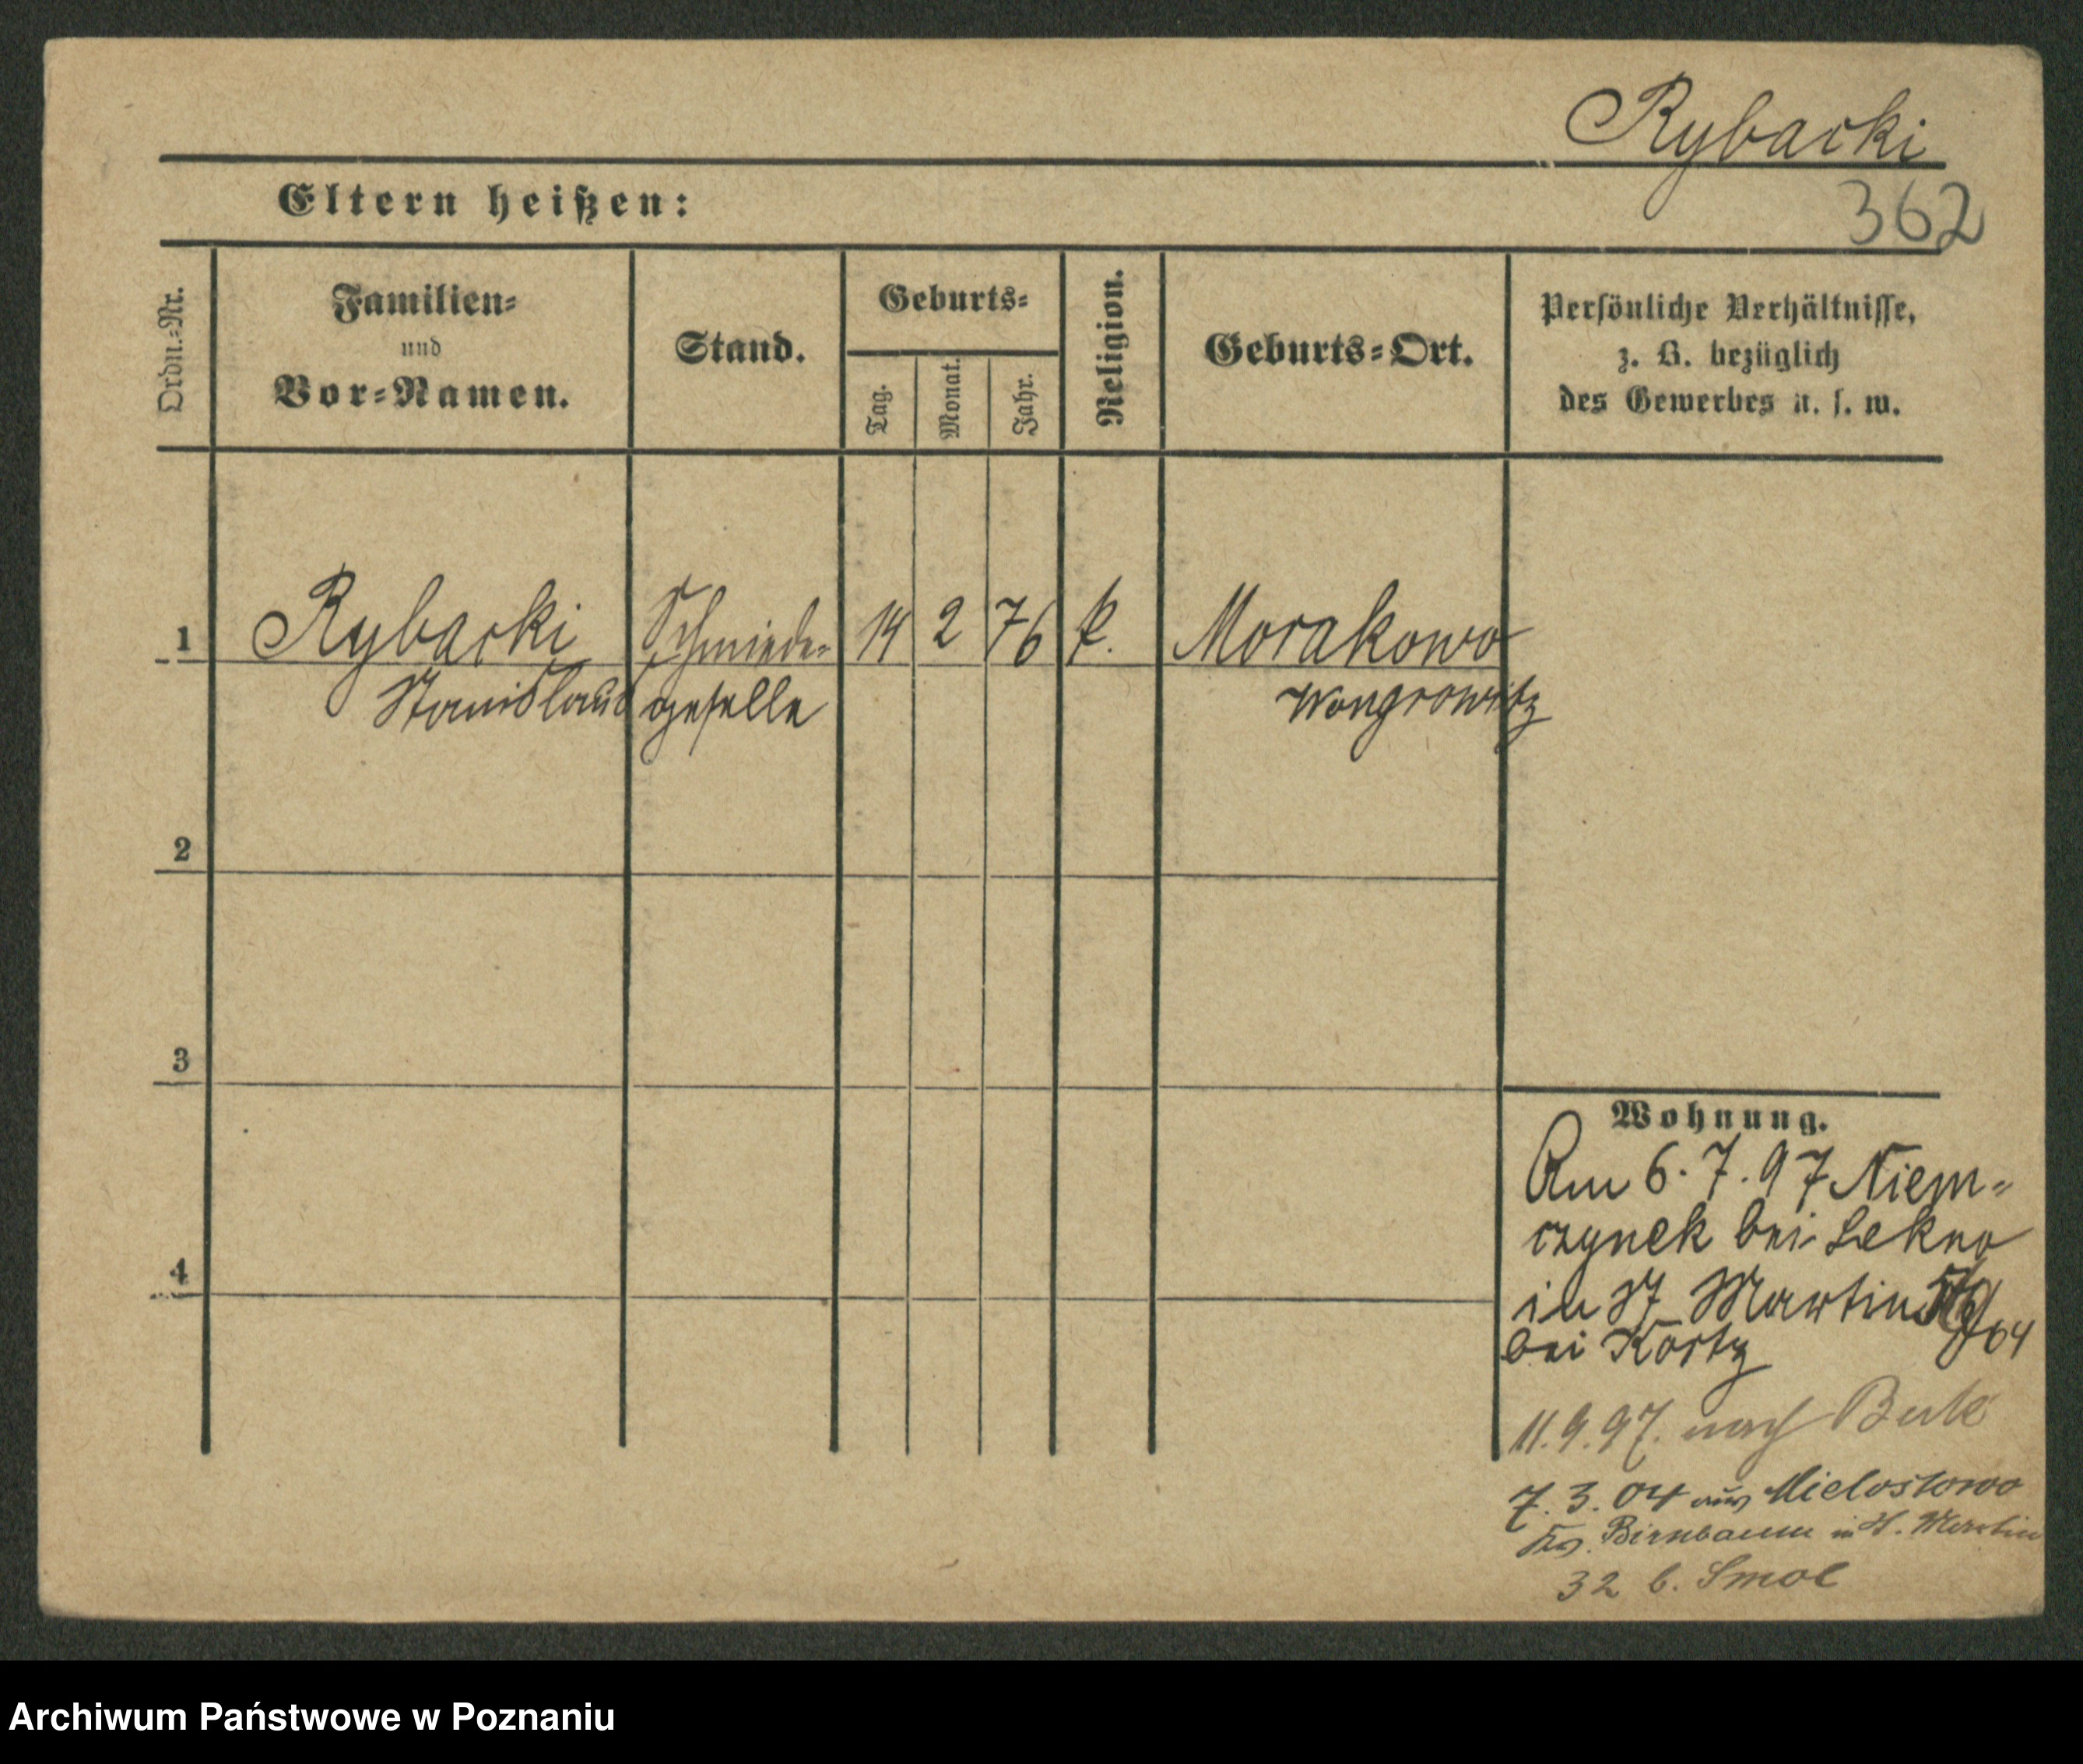 Rybacki
362
Eltern heißen:
Ordn.-Nr.
Familien-
und
Vor-Namen.
Stand.
Geburts-
Tag.
Monat.
Jahr.
Religion.
Geburts-Ort.
Persönliche Verhältnisse,
z. B. bezüglich
des Gewerbes u. s. w.
1
Rybacki Schmiede- 14 2 76 k. Morakowo
Stanislaus geselle Wongrowitz
2
3
4
Wohnung.
Am 6.7.97 Niem-
czynek bei Lekno
in St Martin /64
bei Kortz
11.9.97. nach Buk
7.3.04 aus Mielostowo
Krs. Birnbaum in St. Martin
32 b. Smol
Archiwum Państwowe w Poznaniu